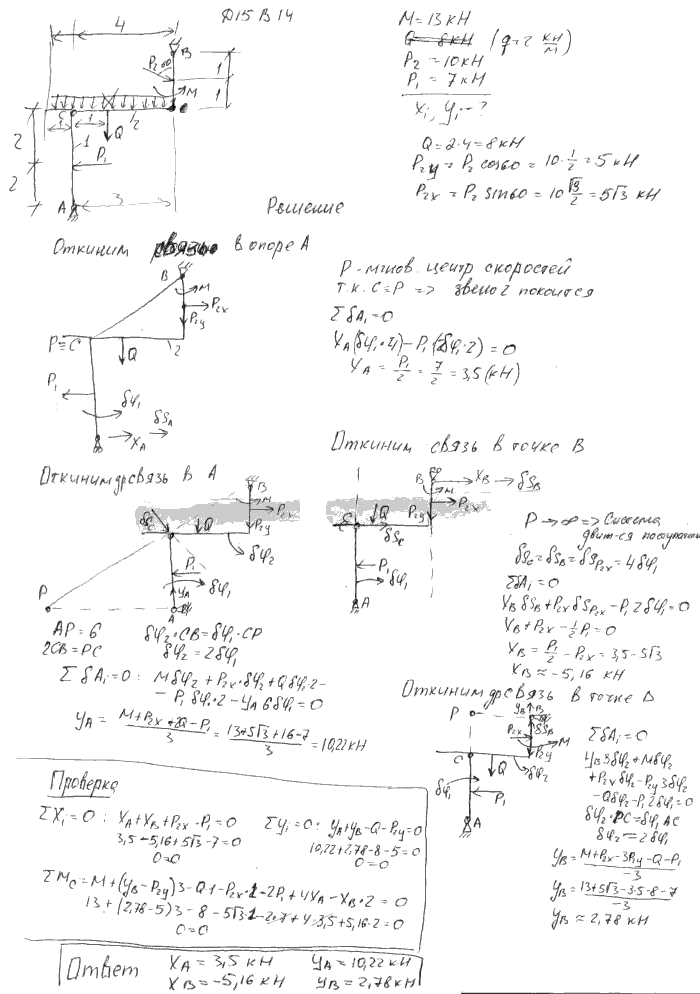 Д15 В 14
M = 13 кН
Q = 8 кН (q = 2 кН/м)
P₂ = 10 кН
P₁ = 7 кН
Xᵢ, Yᵢ - ?
Q = 2·4 = 8 кН
P₂y = P₂ cos60 = 10·1/2 = 5 кН
P₂x = P₂ sin60 = 10 √3/2 = 5√3 кН
4
B
P₂ 60
1
M
1
C
1
1
2
Q
2
1
P₁
2
A
3
Решение
Откиним связь в опоре A
B
M
P₂x
P₂y
P≡C
Q
2
P₁
δφ₁
δS_A
X_A
P - мгнов. центр скоростей
т.к. C≡P => звено 2 покоится
ΣδAᵢ = 0
X_A(δφ₁·4) - P₁(δφ₁·2) = 0
X_A = P₁/2 = 7/2 = 3,5 (кН)
Откиним связь в точке B
B
M
X_B
δS_B
P₂y
P₂x
C
Q
δS_C
P₁
δφ₁
A
P → ∞ => Система
движ-ся поступат
δS_C = δS_B = δS_P₂x = 4δφ₁
ΣδAᵢ = 0
X_B δS_B + P₂x δS_P₂x - P₁ 2δφ₁ = 0
X_B + P₂x - 1/2 P₁ = 0
X_B = P₁/2 - P₂x = 3,5 - 5√3
X_B ≈ -5,16 кН
Откиним связь в A
B
M
P₂x
P₂y
δS_C
Q
δφ₂
P₁
δφ₁
Y_A
P
A
AP = 6
δφ₂·CB = δφ₁·CP
2CB = PC
δφ₂ = 2δφ₁
ΣδAᵢ = 0: Mδφ₂ + P₂x·δφ₂ + Qδφ₁·2 -
- P₁δφ₁·2 - Y_A 6δφ₁ = 0
Y_A = (M + P₂x + 2Q - P₁)/3 = (13 + 5√3 + 16 - 7)/3 = 10,22 кН
Откиним связь в точке
P
Y_B
B
δS_B
P₂x
M
C
P₂y
Q
δφ₂
δφ₁
P₁
A
ΣδAᵢ = 0
Y_B 3δφ₂ + Mδφ₂
+ P₂x δφ₂ - P₂y 3δφ₂
- Qδφ₂ - P₁ 2δφ₁ = 0
δφ₂·PC = δφ₁ AC
δφ₂ = 2δφ₁
Y_B = (M + P₂x - 3P₂y - Q - P₁)/-3
Y_B = (13 + 5√3 - 3·5 - 8 - 7)/-3
Y_B ≈ 2,78 кН
Проверка
ΣXᵢ = 0: X_A + X_B + P₂x - P₁ = 0
3,5 - 5,16 + 5√3 - 7 = 0
0 = 0
Σyᵢ = 0: Y_A + Y_B - Q - P₂y = 0
10,22 + 2,78 - 8 - 5 = 0
0 = 0
ΣM_C = M + (Y_B - P₂y)3 - Q·1 - P₂x·1 - 2P₁ + 4X_A - X_B·2 = 0
13 + (2,78 - 5)3 - 8 - 5√3·1 - 2·7 + 4·3,5 + 5,16·2 = 0
0 = 0
Ответ
X_A = 3,5 кН
Y_A = 10,22 кН
X_B = -5,16 кН
Y_B = 2,78 кН